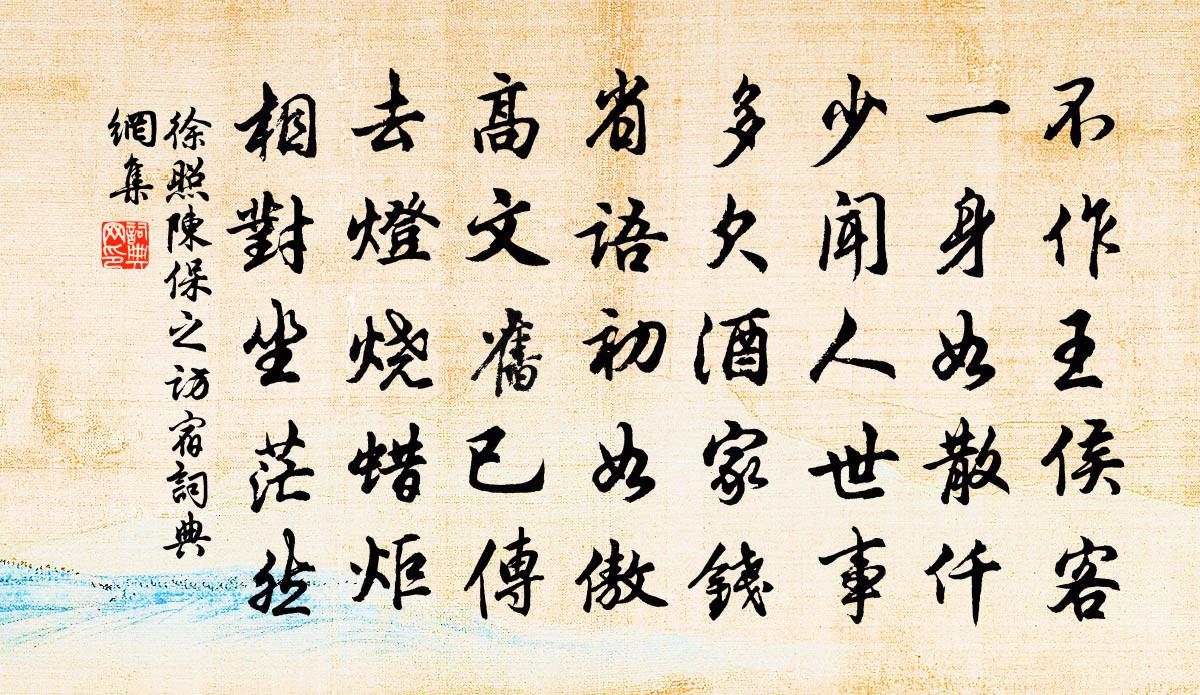 不作王侯客
一身如散仟
少闻人世事
多欠酒家錢
省语初如傲
高文舊已傳
去燈烧蜡炬
相對坐茫然
徐照陳保之访宿詞典
網集
詞典
网印